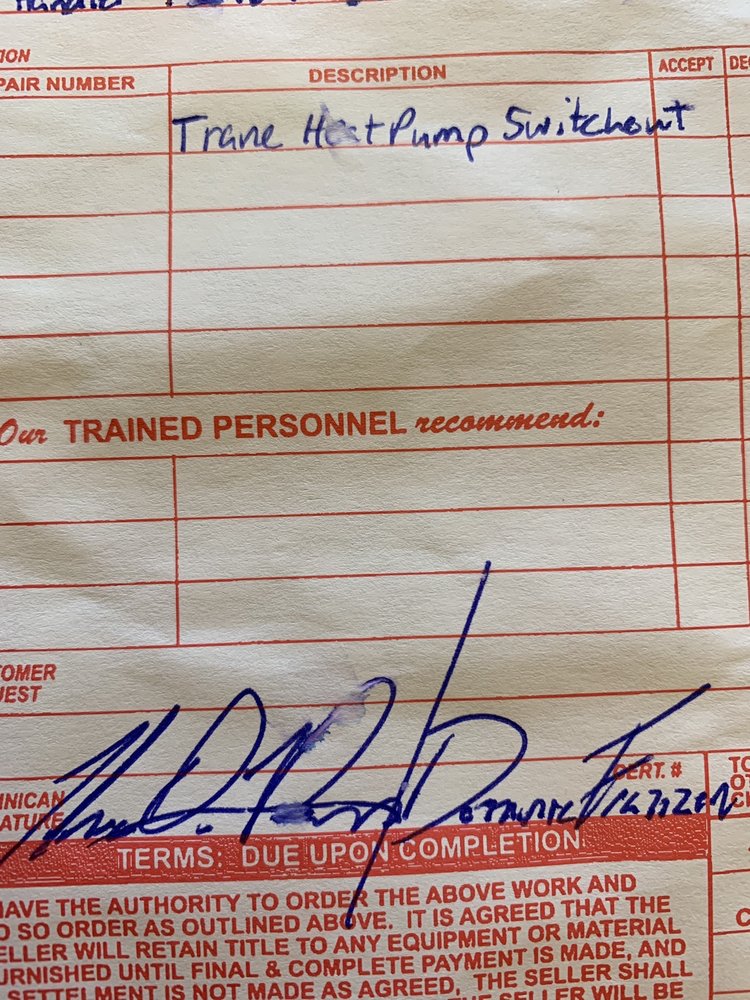 ION
PAIR NUMBER DESCRIPTION ACCEPT DE
Trane Heat Pump Switchout
Our TRAINED PERSONNEL recommend:
OMER
EST
CERT. #
NICIAN
ATURE
TERMS: DUE UPON COMPLETION
HAVE THE AUTHORITY TO ORDER THE ABOVE WORK AND
O SO ORDER AS OUTLINED ABOVE. IT IS AGREED THAT THE
ELLER WILL RETAIN TITLE TO ANY EQUIPMENT OR MATERIAL
URNISHED UNTIL FINAL & COMPLETE PAYMENT IS MADE, AND
SETTLEMENT IS NOT MADE AS AGREED, THE SELLER SHALL
THE SELLER WILL BE